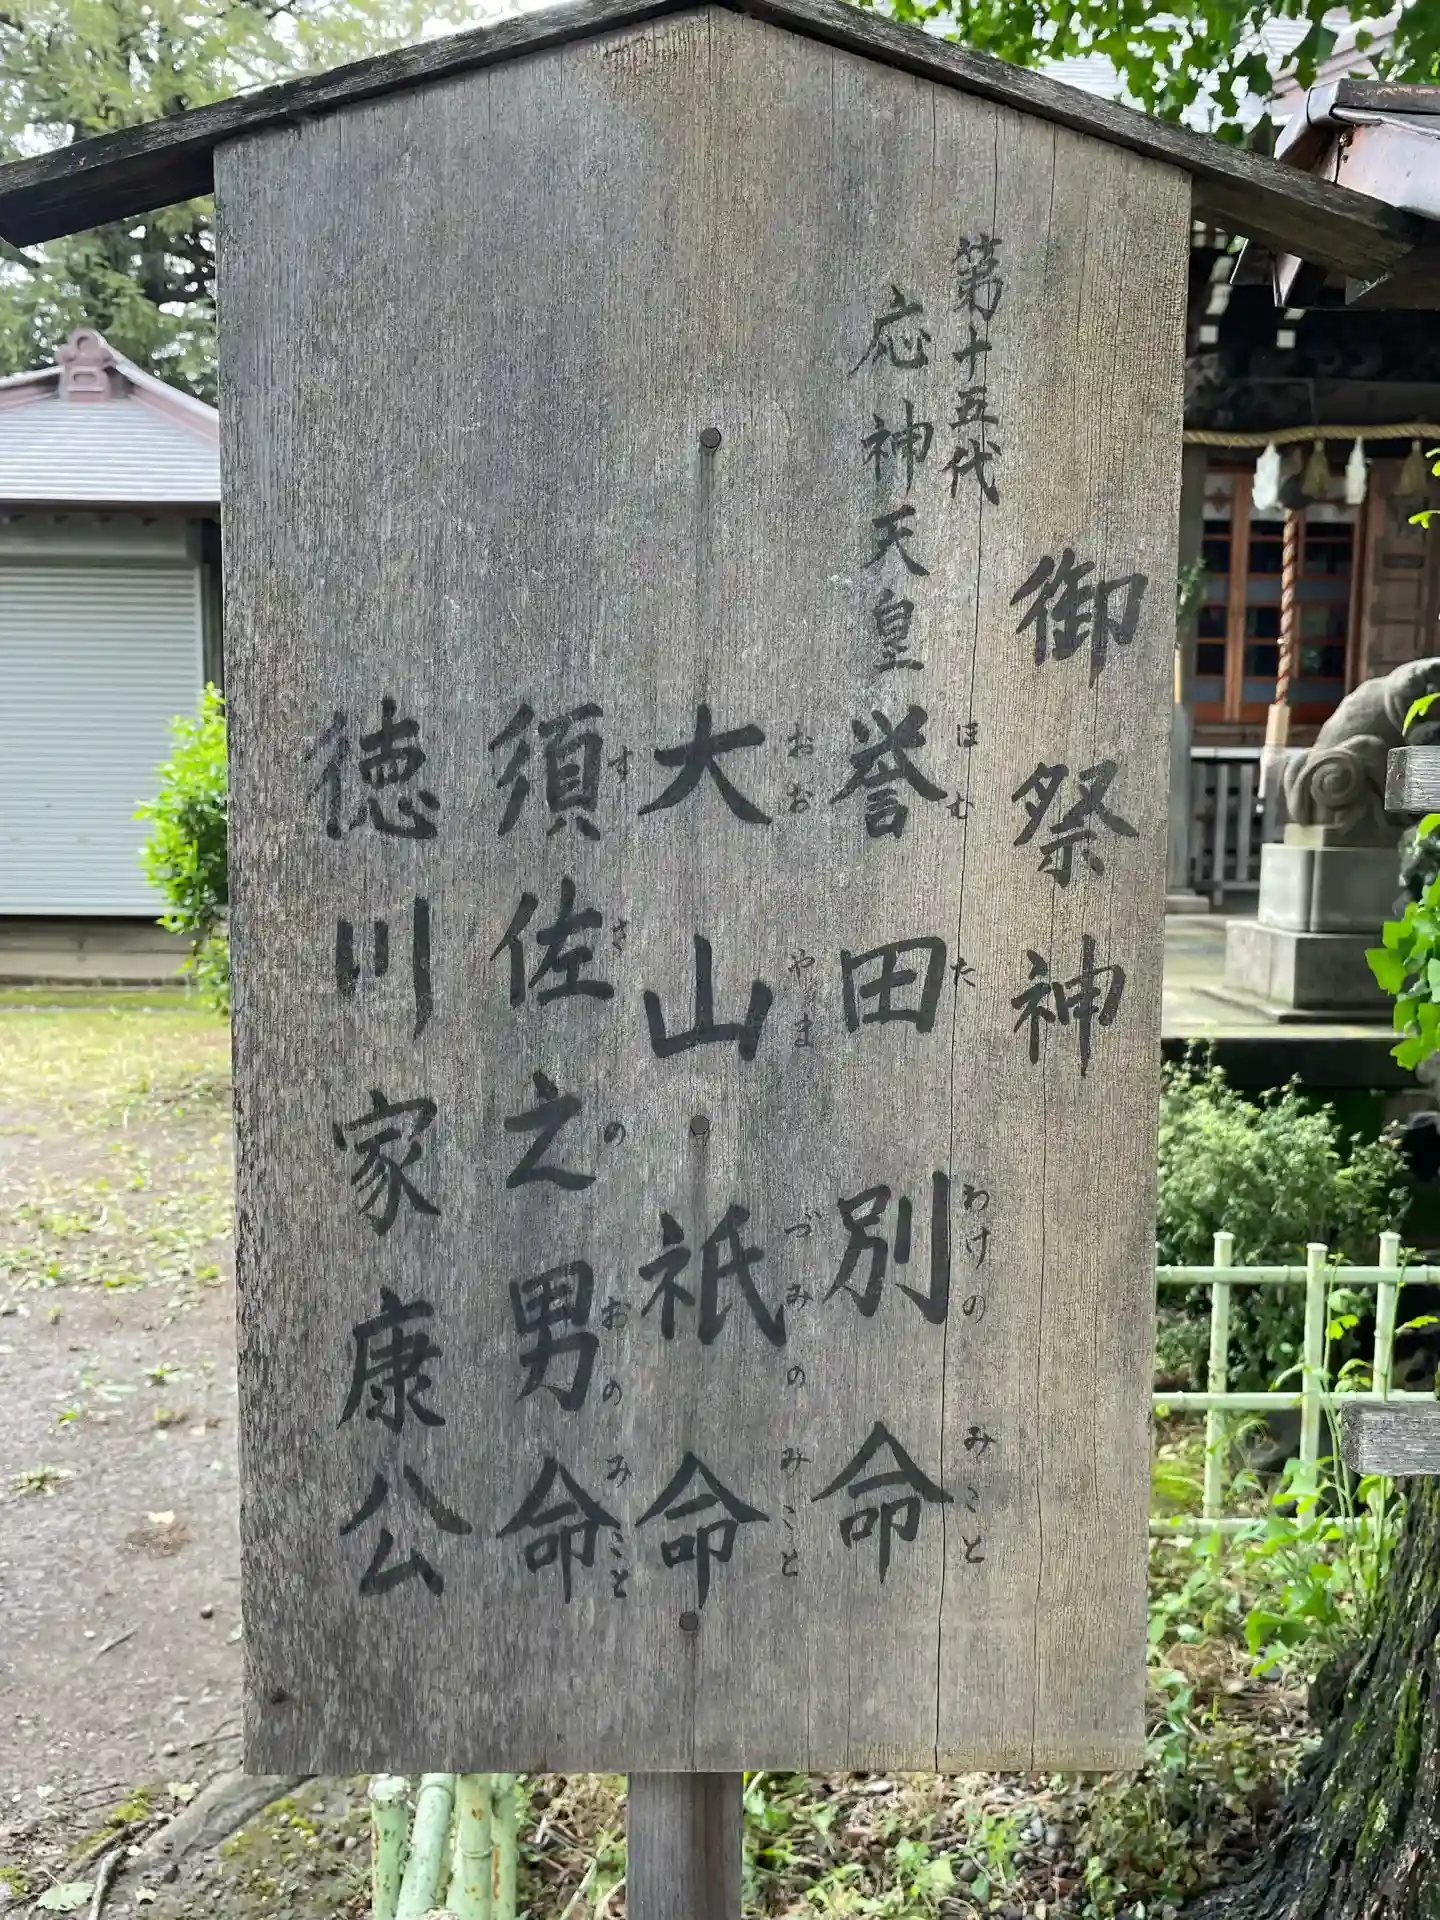 御祭神
第十五代
応神天皇
誉田別命
ほむたわけのみこと
大山祇命
おおやまづみのみこと
須佐之男命
すさのおのみこと
徳川家康公